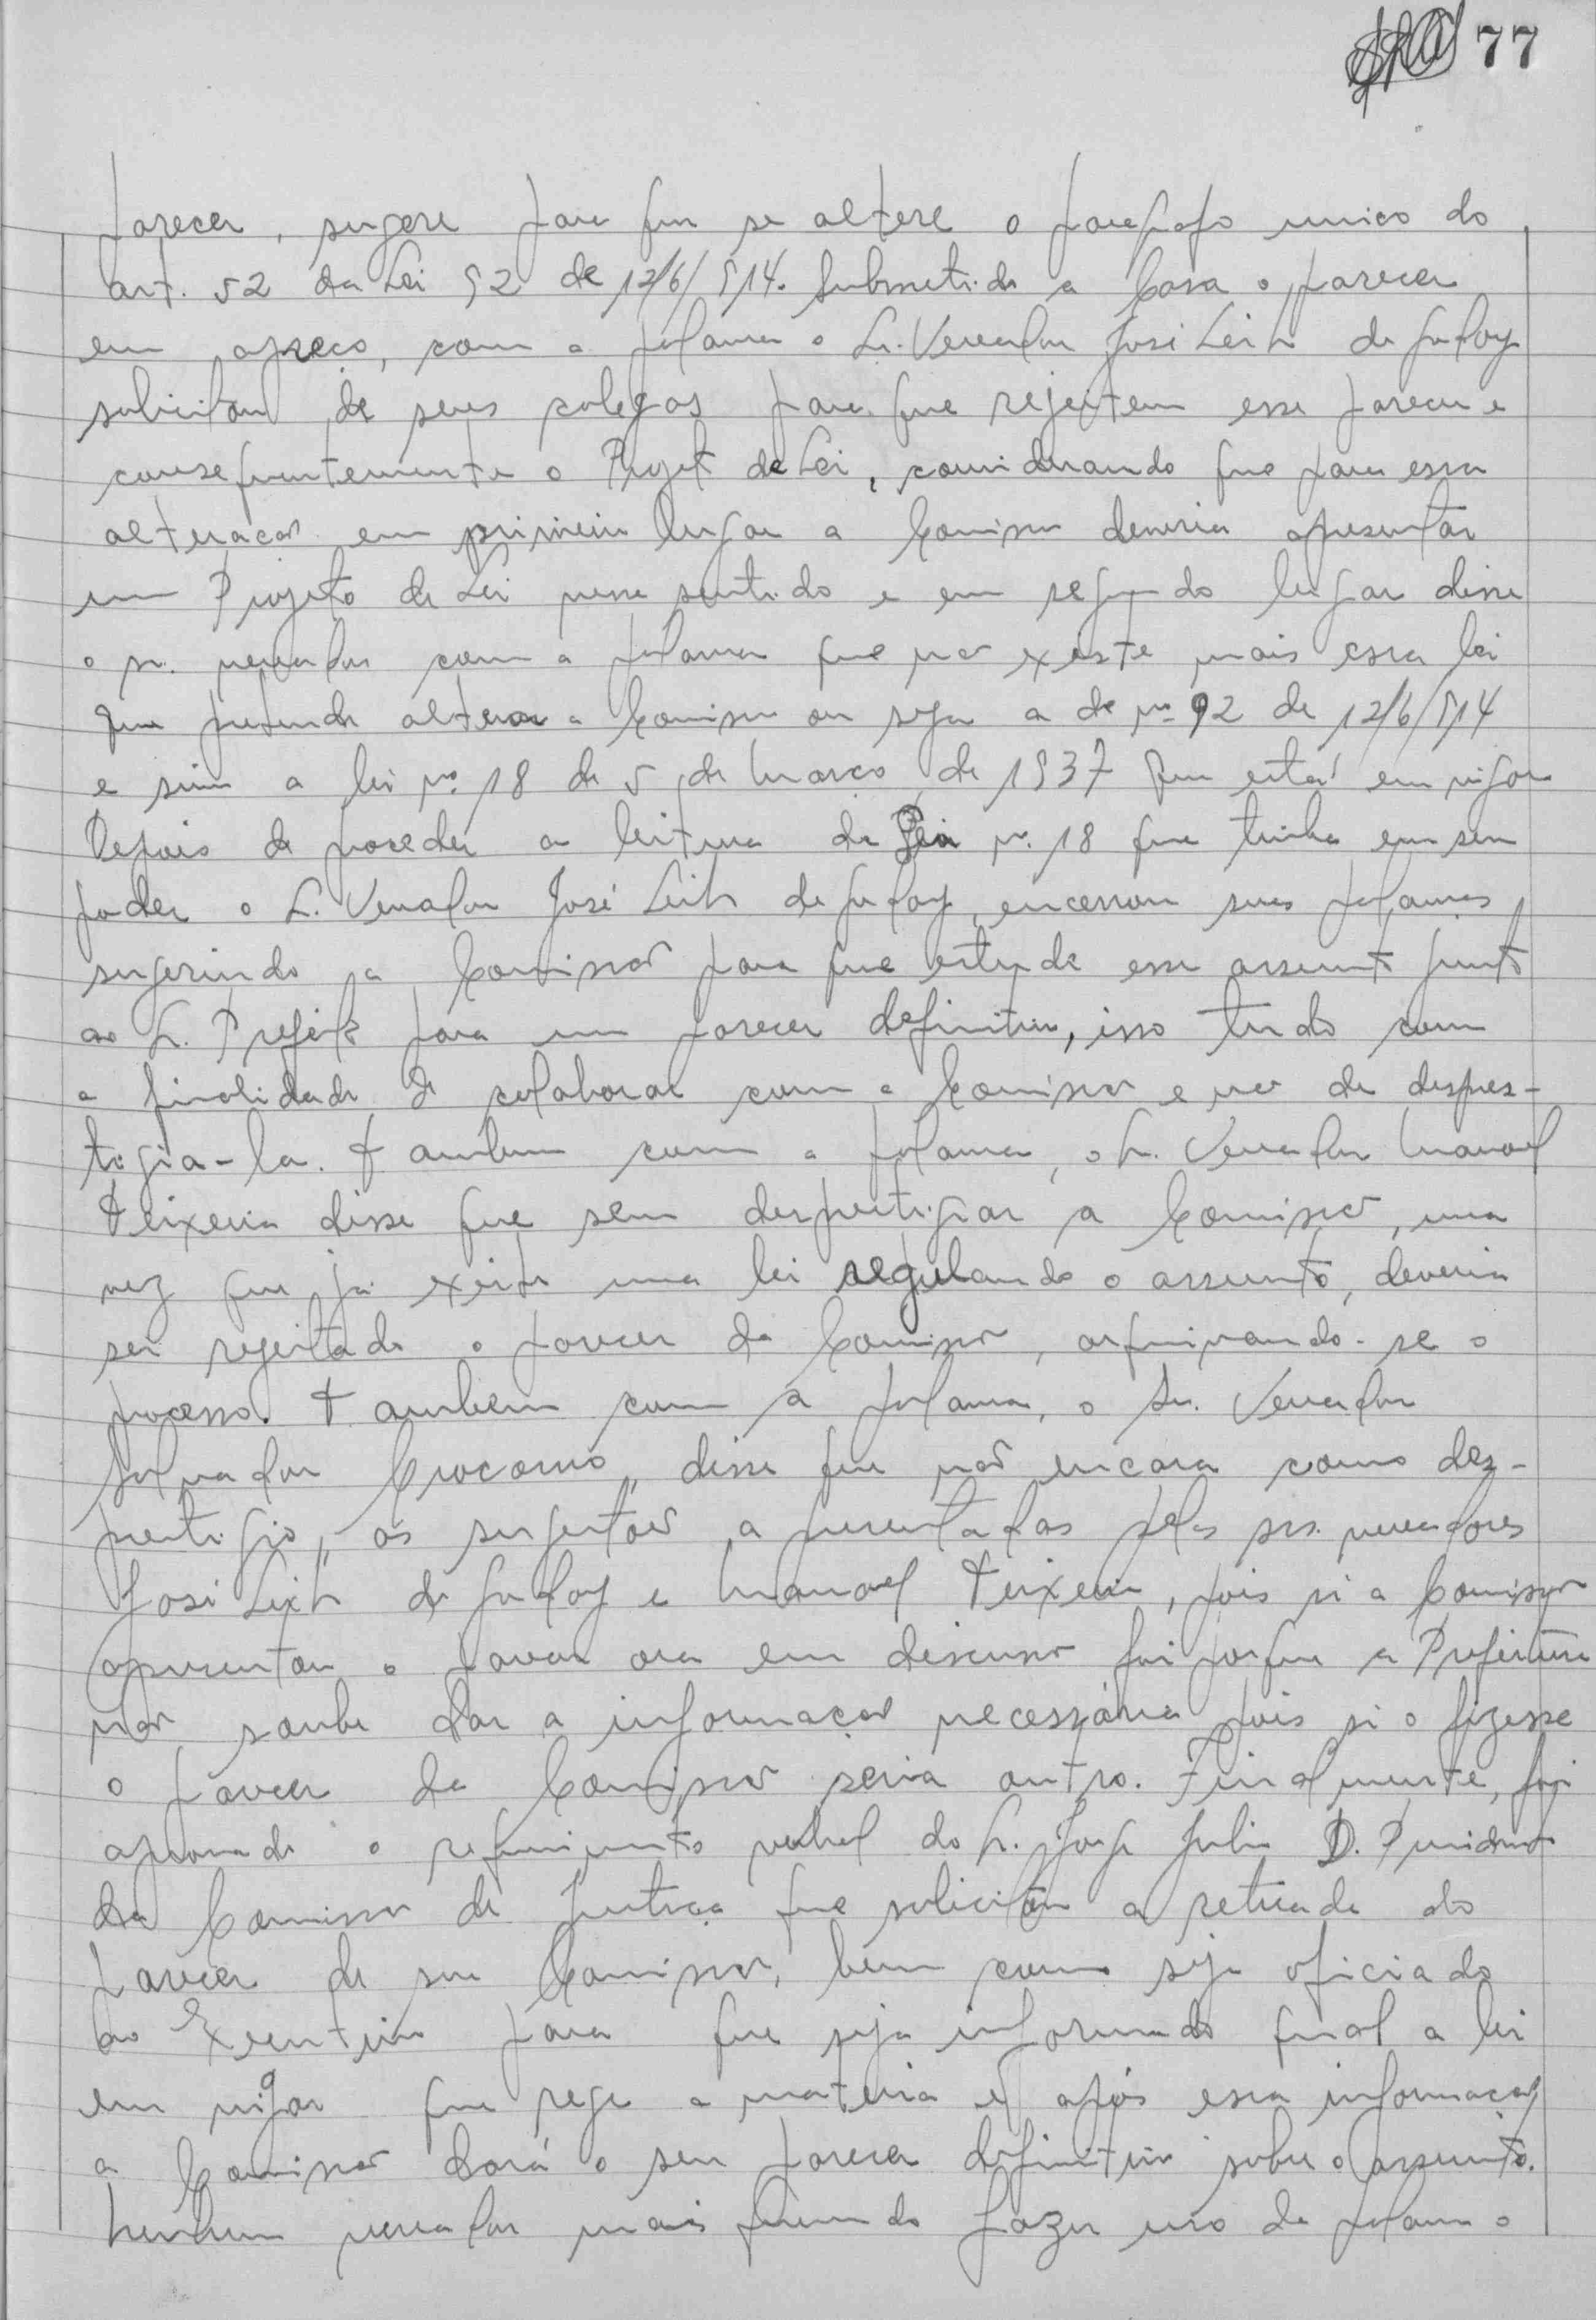 77
parecer, sugere para que se altere o paragrafo unico do
art. 52 da Lei 92 de 12/6/914. Submetido a Casa o parecer
em apreço, com a palavra o Sr. Vereador José Leite de Godoy
solicitou de seus colegas para que rejeitem esse parecer e
consequentemente o Projeto de Lei, considerando que para essa
alteração em primeiro lugar a Comissão deveria apresentar
um Projeto de Lei nesse sentido e em segundo lugar disse
o sr. vereador com a palavra que não existe mais essa lei
que pretende alterar a Comissão ou seja a de nº 92 de 12/6/914
e sim a lei nº 18 de 5 de Março de 1937 que está em vigor
Depois de proceder a leitura da Lei nº 18 que tinha em seu
poder o Sr. Vereador José Leite de Godoy, encerrou suas palavras
sugerindo a Comissão para que estude esse assunto junto
ao Sr. Prefeito para um parecer definitivo, isso tudo com
a finalidade de colaborar com a Comissão e não de despres-
tigia-la. Tambem com a palavra, o Sr. Vereador Manoel
Teixeira disse que sem desprestigiar a Comissão, uma
vez que já existe uma lei regulando o assunto, deveria
ser rejeitado o parecer da Comissão, arquivando-se o
processo. Tambem com a palavra, o Sr. Vereador
Salvador Crocomo, disse que não encara como des-
prestigio, as sugestões apresentadas pelos srs. vereadores
José Leite de Godoy e Manoel Teixeira, pois si a Comissão
apresentou o parecer ora em discussão foi porque a Prefeitura
não soube dar a informação necessária pois si o fizesse
o parecer da Comissão seria outro. Finalmente, foi
aprovado o requerimento verbal do Sr. Jorge Julio D. Presidente
da Comissão de Justiça que solicitou a retirada do
parecer de sua Comissão, bem como seja oficiado
ao Executivo para que seja informado qual a lei
em vigor que rege a materia e após essa informação
a Comissão dará o seu parecer definitivo sobre o assunto.
Nenhum vereador mais querendo fazer uso da palavra o